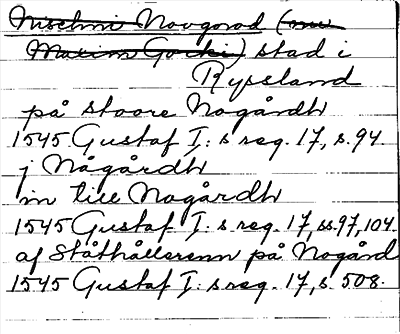 Nischni Novgorod (nu
Maxim Gorki) stad i
Ryssland
på stoore Nogårdh
1545 Gustaf I:s reg. 17, s. 94.
j Någårdh
in till Nogårdh
1545 Gustaf I:s reg. 17, ss. 97, 104.
af Ståthållerenn på Nogård
1545 Gustaf I:s reg. 17, s. 508.